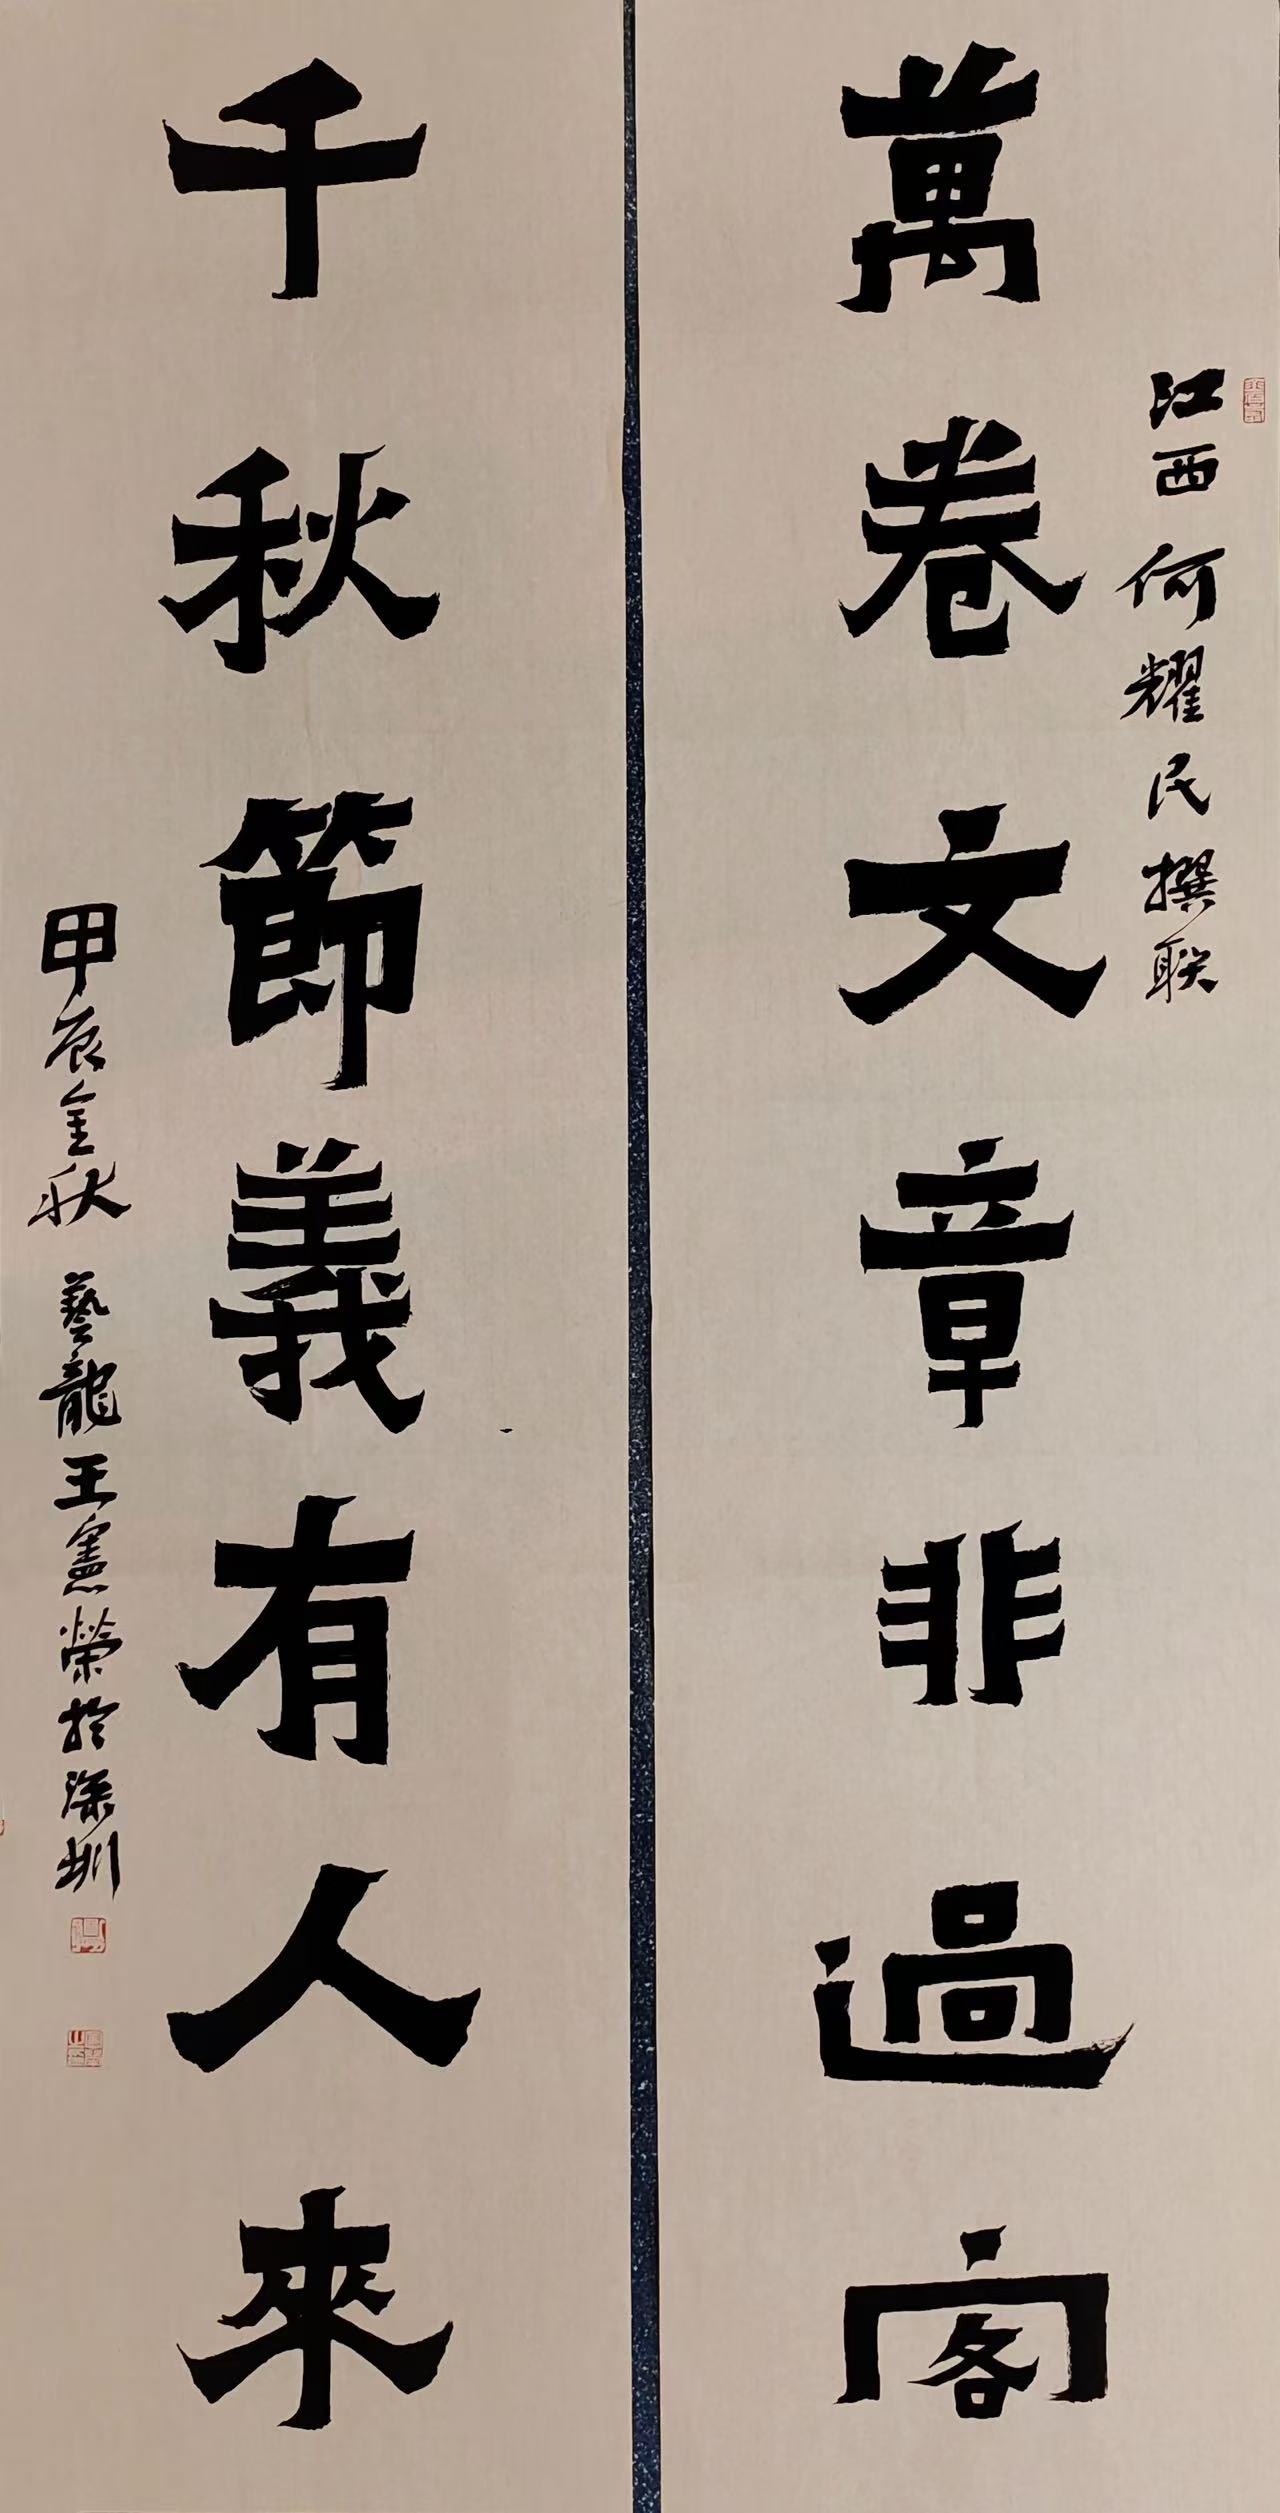 江西何耀民撰联
萬卷文章非過客
千秋節義有人來
甲辰金秋 藝龍王憲榮於深圳